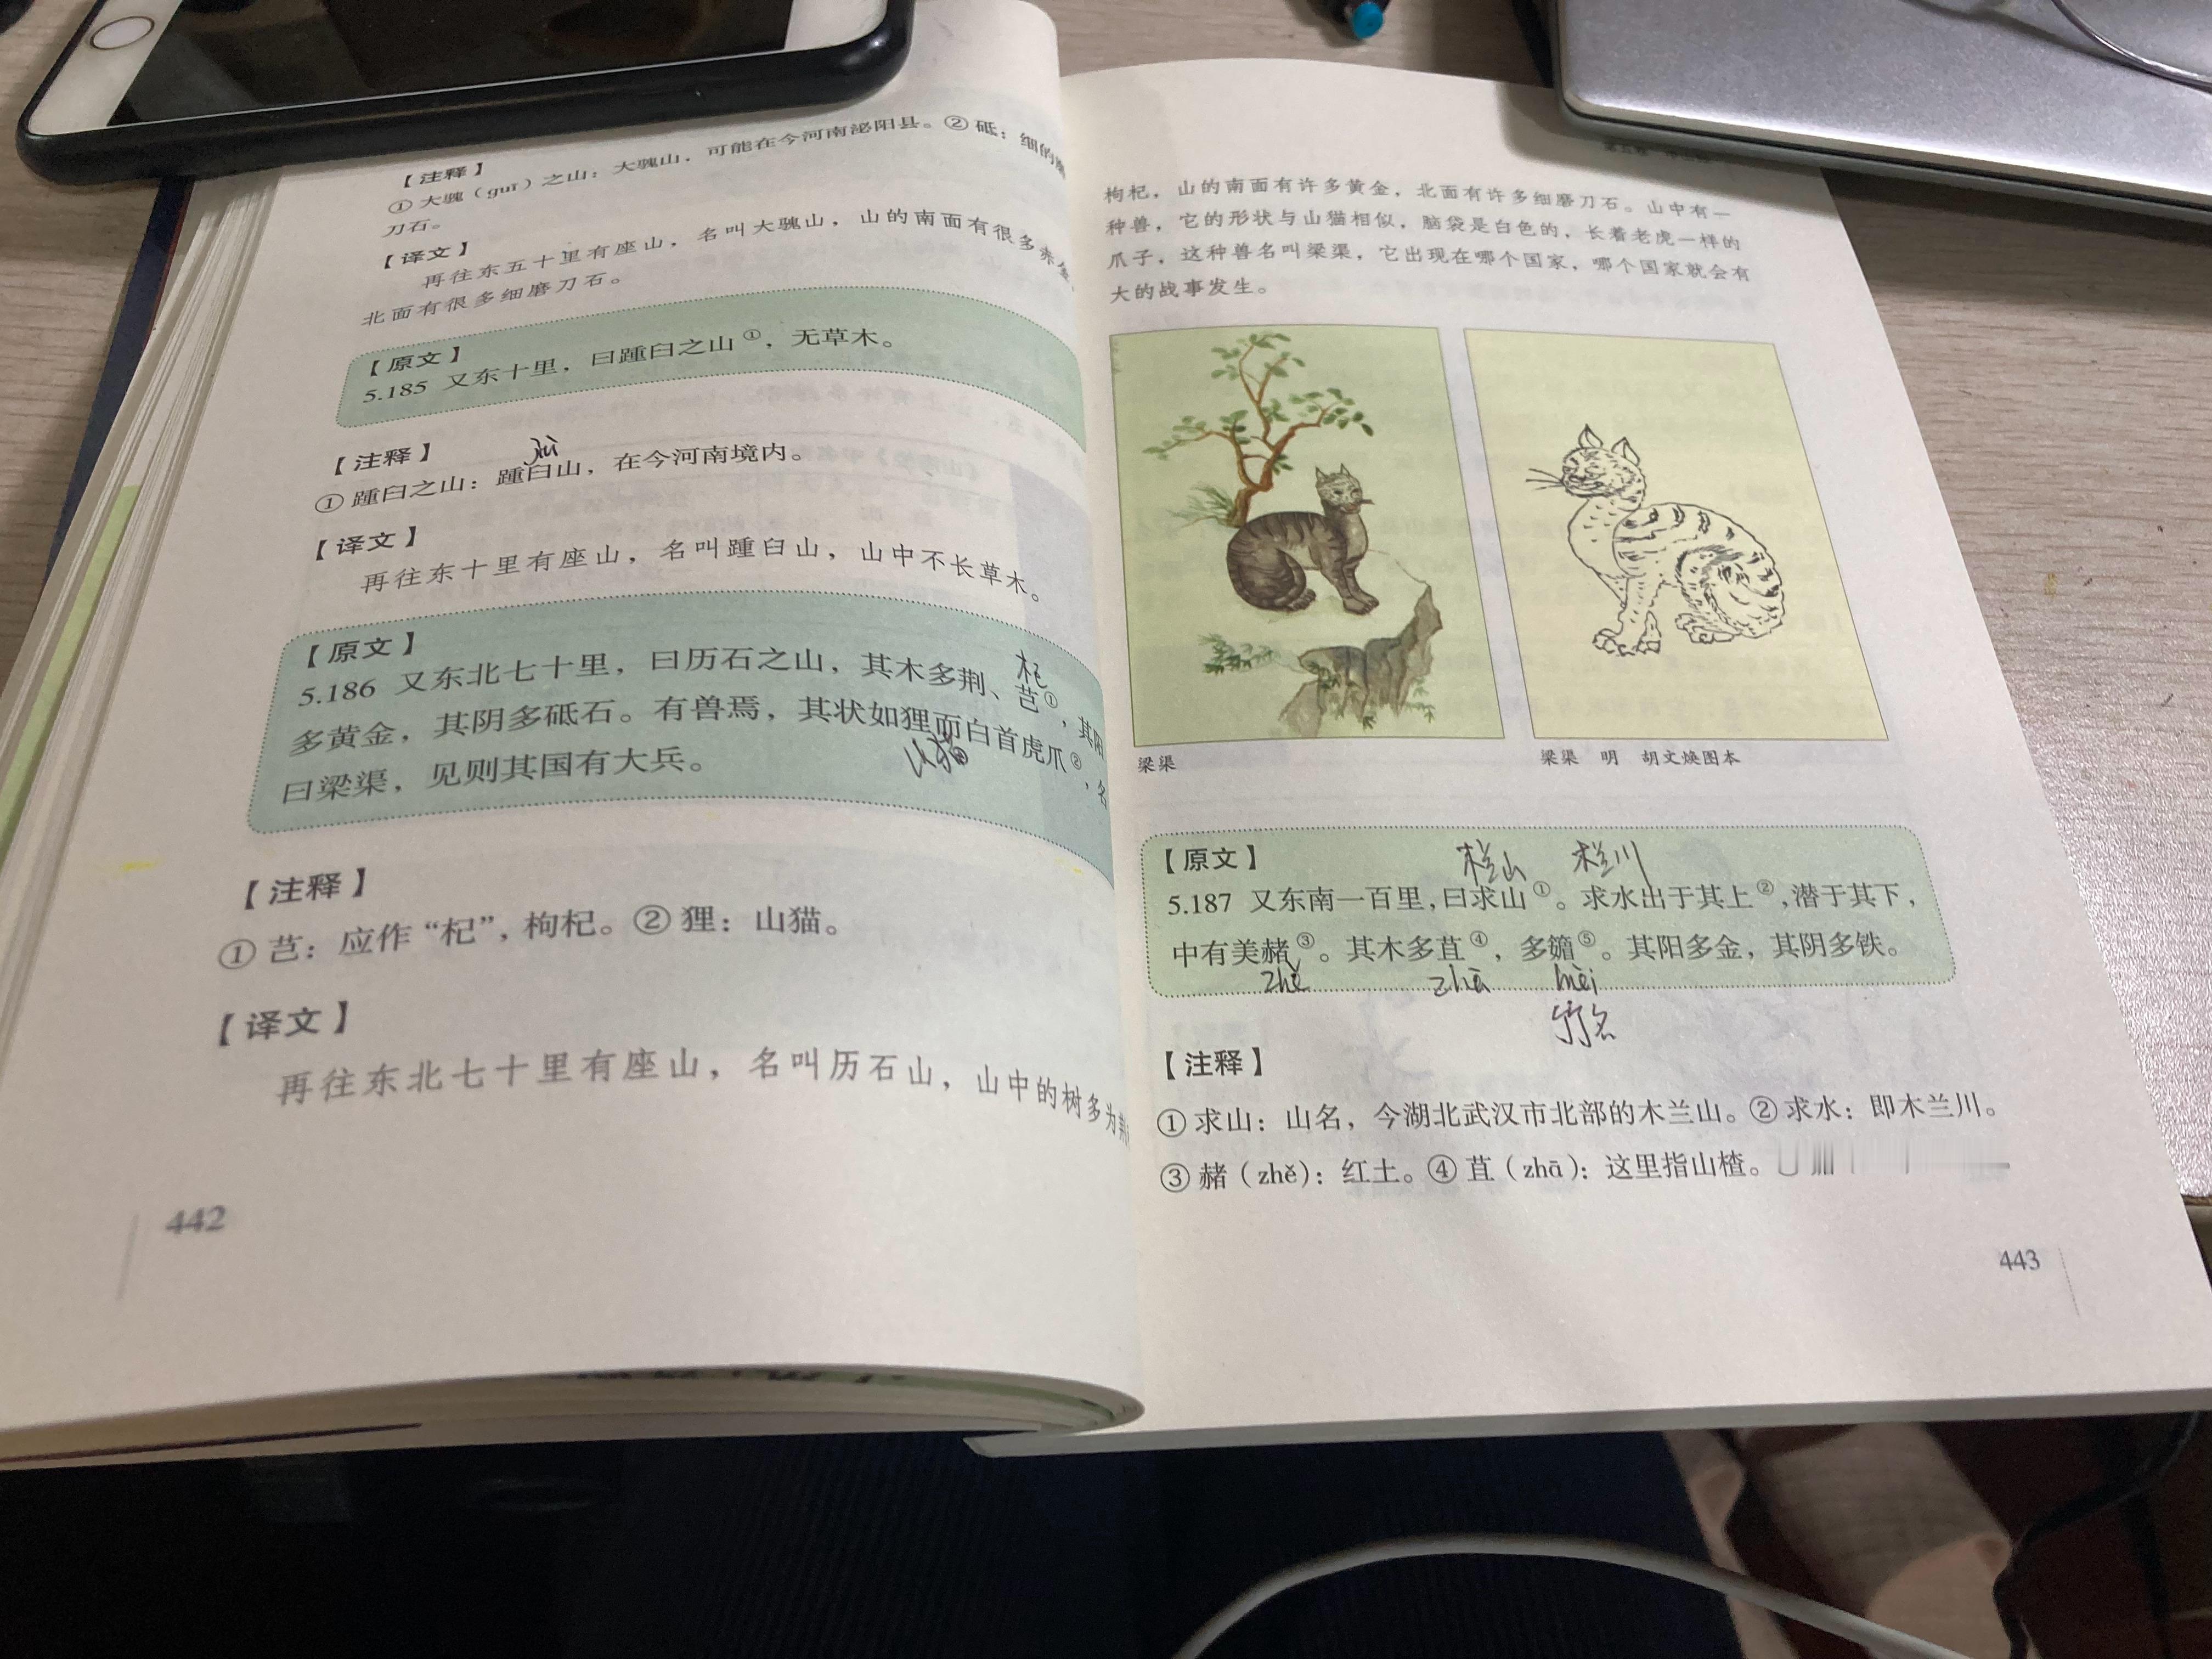 【注释】
①大騩（guī）之山：大騩山，可能在今河南泌阳县。②砥：细的
刀石。
【译文】
再往东五十里有座山，名叫大騩山，山的南面有很多
北面有很多细磨刀石。
【原文】
5.185 又东十里，曰踵臼之山①，无草木。
【注释】
jiù
①踵臼之山：踵臼山，在今河南境内。
【译文】
再往东十里有座山，名叫踵臼山，山中不长草木。
【原文】
杞
5.186 又东北七十里，曰历石之山，其木多荆、芑①，其阳
多黄金，其阴多砥石。有兽焉，其状如狸而白首虎爪②，名
山猫
曰梁渠，见则其国有大兵。
【注释】
①芑：应作“杞”，枸杞。②狸：山猫。
【译文】
再往东北七十里有座山，名叫历石山，山中的树多为荆
442
枸杞，山的南面有许多黄金，北面有许多细磨刀石。山中有一
种兽，它的形状与山猫相似，脑袋是白色的，长着老虎一样的
爪子，这种兽名叫梁渠，它出现在哪个国家，哪个国家就会有
大的战事发生。
梁渠
梁渠 明 胡文焕图本
【原文】
木兰山 木兰川
5.187 又东南一百里，曰求山①。求水出于其上②，潜于其下，
中有美赭③。其木多苴④，多䉋⑤。其阳多金，其阴多铁。
zhě zhā mèi
竹名
【注释】
①求山：山名，今湖北武汉市北部的木兰山。②求水：即木兰川。
③赭（zhě）：红土。④苴（zhā）：这里指山楂。
443